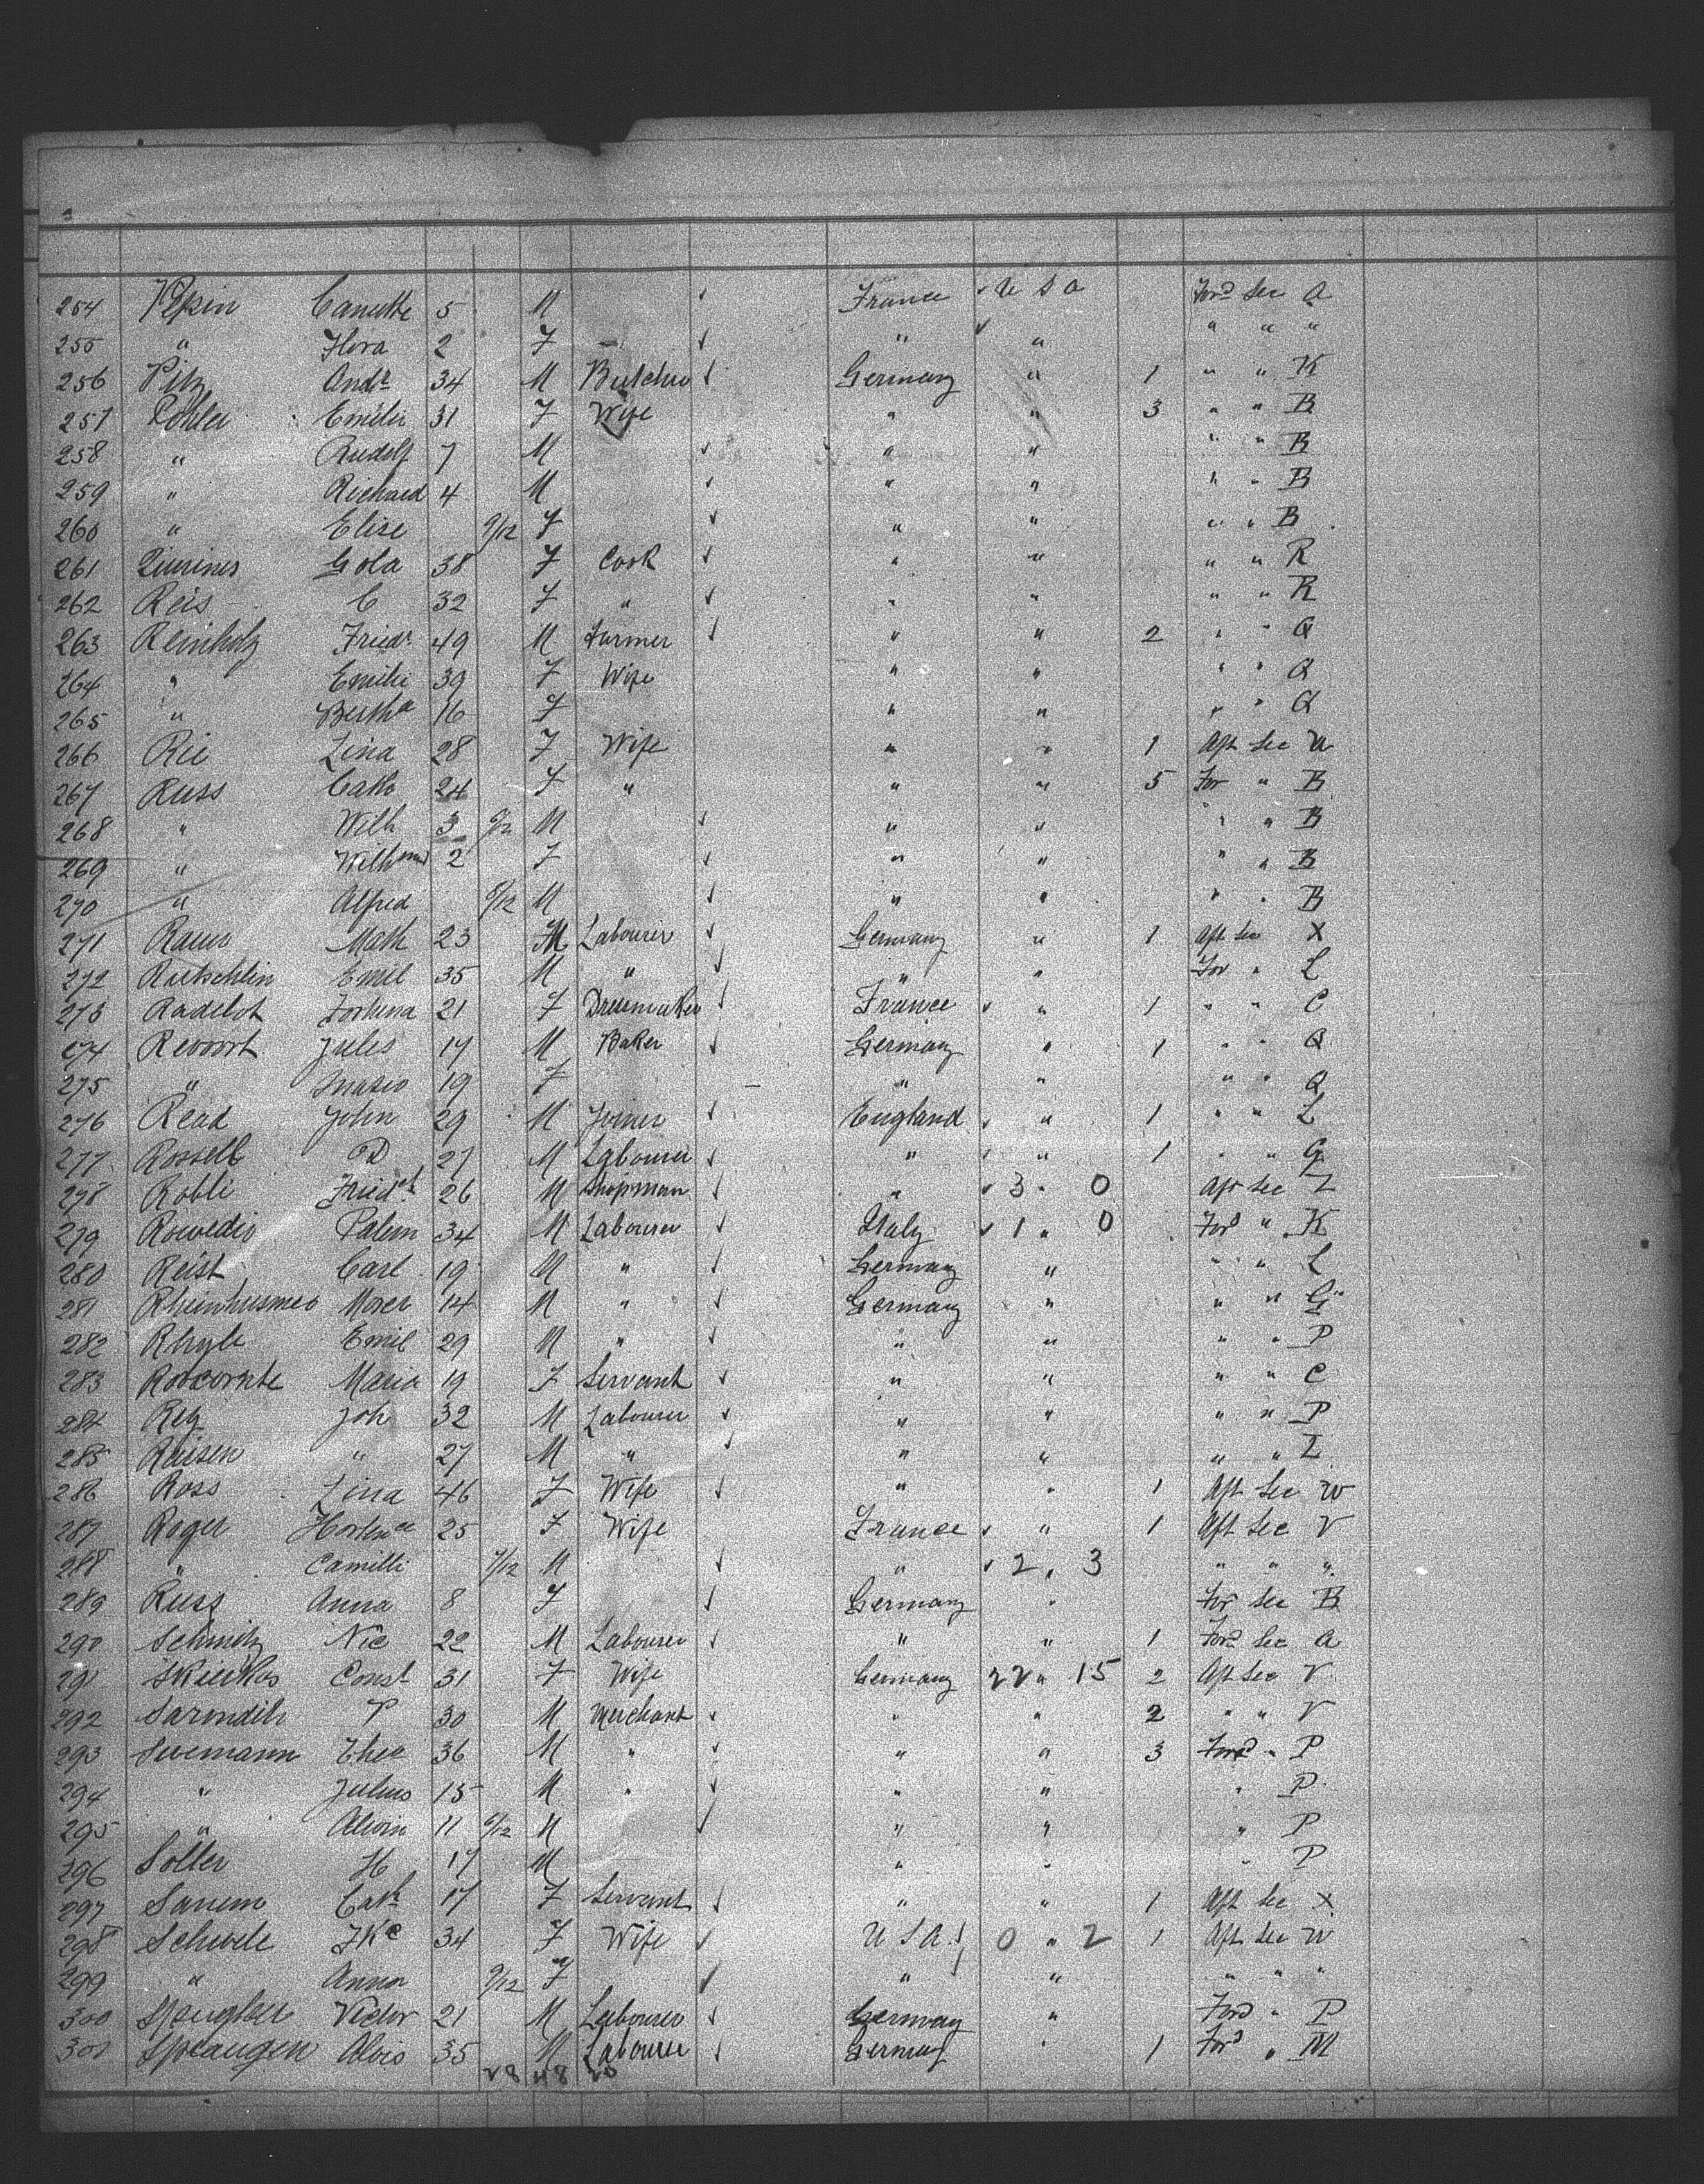 254 Pepin Camille 5 M ✓ France ✓ U S A Ford Sec Q
255 " Flora 2 F — ✓ " ✓ " " " "
256 Pilz Andr 34 M Butcher ✓ Germany " 1 " " K
257 Pohler Emilie 31 F Wife " " 3 " " B
258 " Rudolf 7 M ✓ " " " " B
259 " Richard 4 M ✓ " " " " B
260 " Elise 9/12 F ✓ " " " " B
261 Gola 38 F Cook ✓ " " " " R
262 Reis C 32 F " ✓ " " " " R
263 Reinholz Friedr 49 M Farmer ✓ " " 2 " " Q
264 " Emilie 39 F Wife " " " " Q
265 " Bertha 16 F " " " " Q
266 Rie Lina 28 F Wife " " 1 Aft Sec U
267 Russ Cath 24 F " " " 5 For " B
268 " Wilh 3 M ✓ " " " " B
269 " 2 F ✓ " " " " B
270 " Alfred 6/12 M ✓ " " " " B
271 Math 23 M Labourer ✓ Germany " 1 Aft Sec X
272 Rutschlin Emil 35 M " ✓ " " For " L
273 Radelot 21 F Dressmaker ✓ France ✓ " 1 " " C
274 Jules 17 M Baker ✓ Germany " 1 " " Q
275 " 19 F " " " " Q
276 Read John 29 M Joiner ✓ England ✓ " 1 " " L
277 27 M Labourer ✓ " ✓ " 1 " " G
278 Robli 26 M Shopman ✓ " ✓ 3 " 0 Aft Sec Z
279 Rowedio Palem 34 M Labourer ✓ Italy ✓ 1 " 0 Ford " K
280 Reist Carl 19 M " ✓ Germany " " " L
281 14 M " ✓ Germany " " " G
282 Rhyle Emil 29 M " ✓ " " " " P
283 Maria 19 F Servant ✓ " " " " C
284 Retz Joh 32 M Labourer ✓ " " " " P
285 Raisen " 27 M " ✓ " " " "
286 Ross Lina 46 F Wife ✓ " " 1 Aft Sec W
287 Roger Hortence 25 F Wife France ✓ " 1 Aft Sec V
288 " Camilli 7/12 M ✓ " ✓ 2 " 3 " " "
289 Russ Anna 8 F ✓ Germany " For Sec B
290 Schmitz Nic 22 M Labourer ✓ " " 1 Ford Sec A
291 Const 31 F Wife Germany 22 " 15 2 Aft Sec V
292 P 30 M Merchant ✓ " " 2 " " V
293 Theo 36 M " ✓ " " 3 Ford " P
294 " Julius 15 M " ✓ " " " P
295 " Alwin 11 6/12 M ✓ " " " P
296 Soller H 17 M " " " P
297 Sanem Cath 17 F Servant ✓ " " 1 Aft Sec X
298 34 F Wife ✓ U S A 0 " 2 1 Aft Sec W
299 " Anna 9/12 F ✓ " " " " "
300 Victor 21 M Labourer ✓ Germany " Ford " P
301 Alois 35 M Labourer ✓ Germany " 1 Ford " M
28 48 20